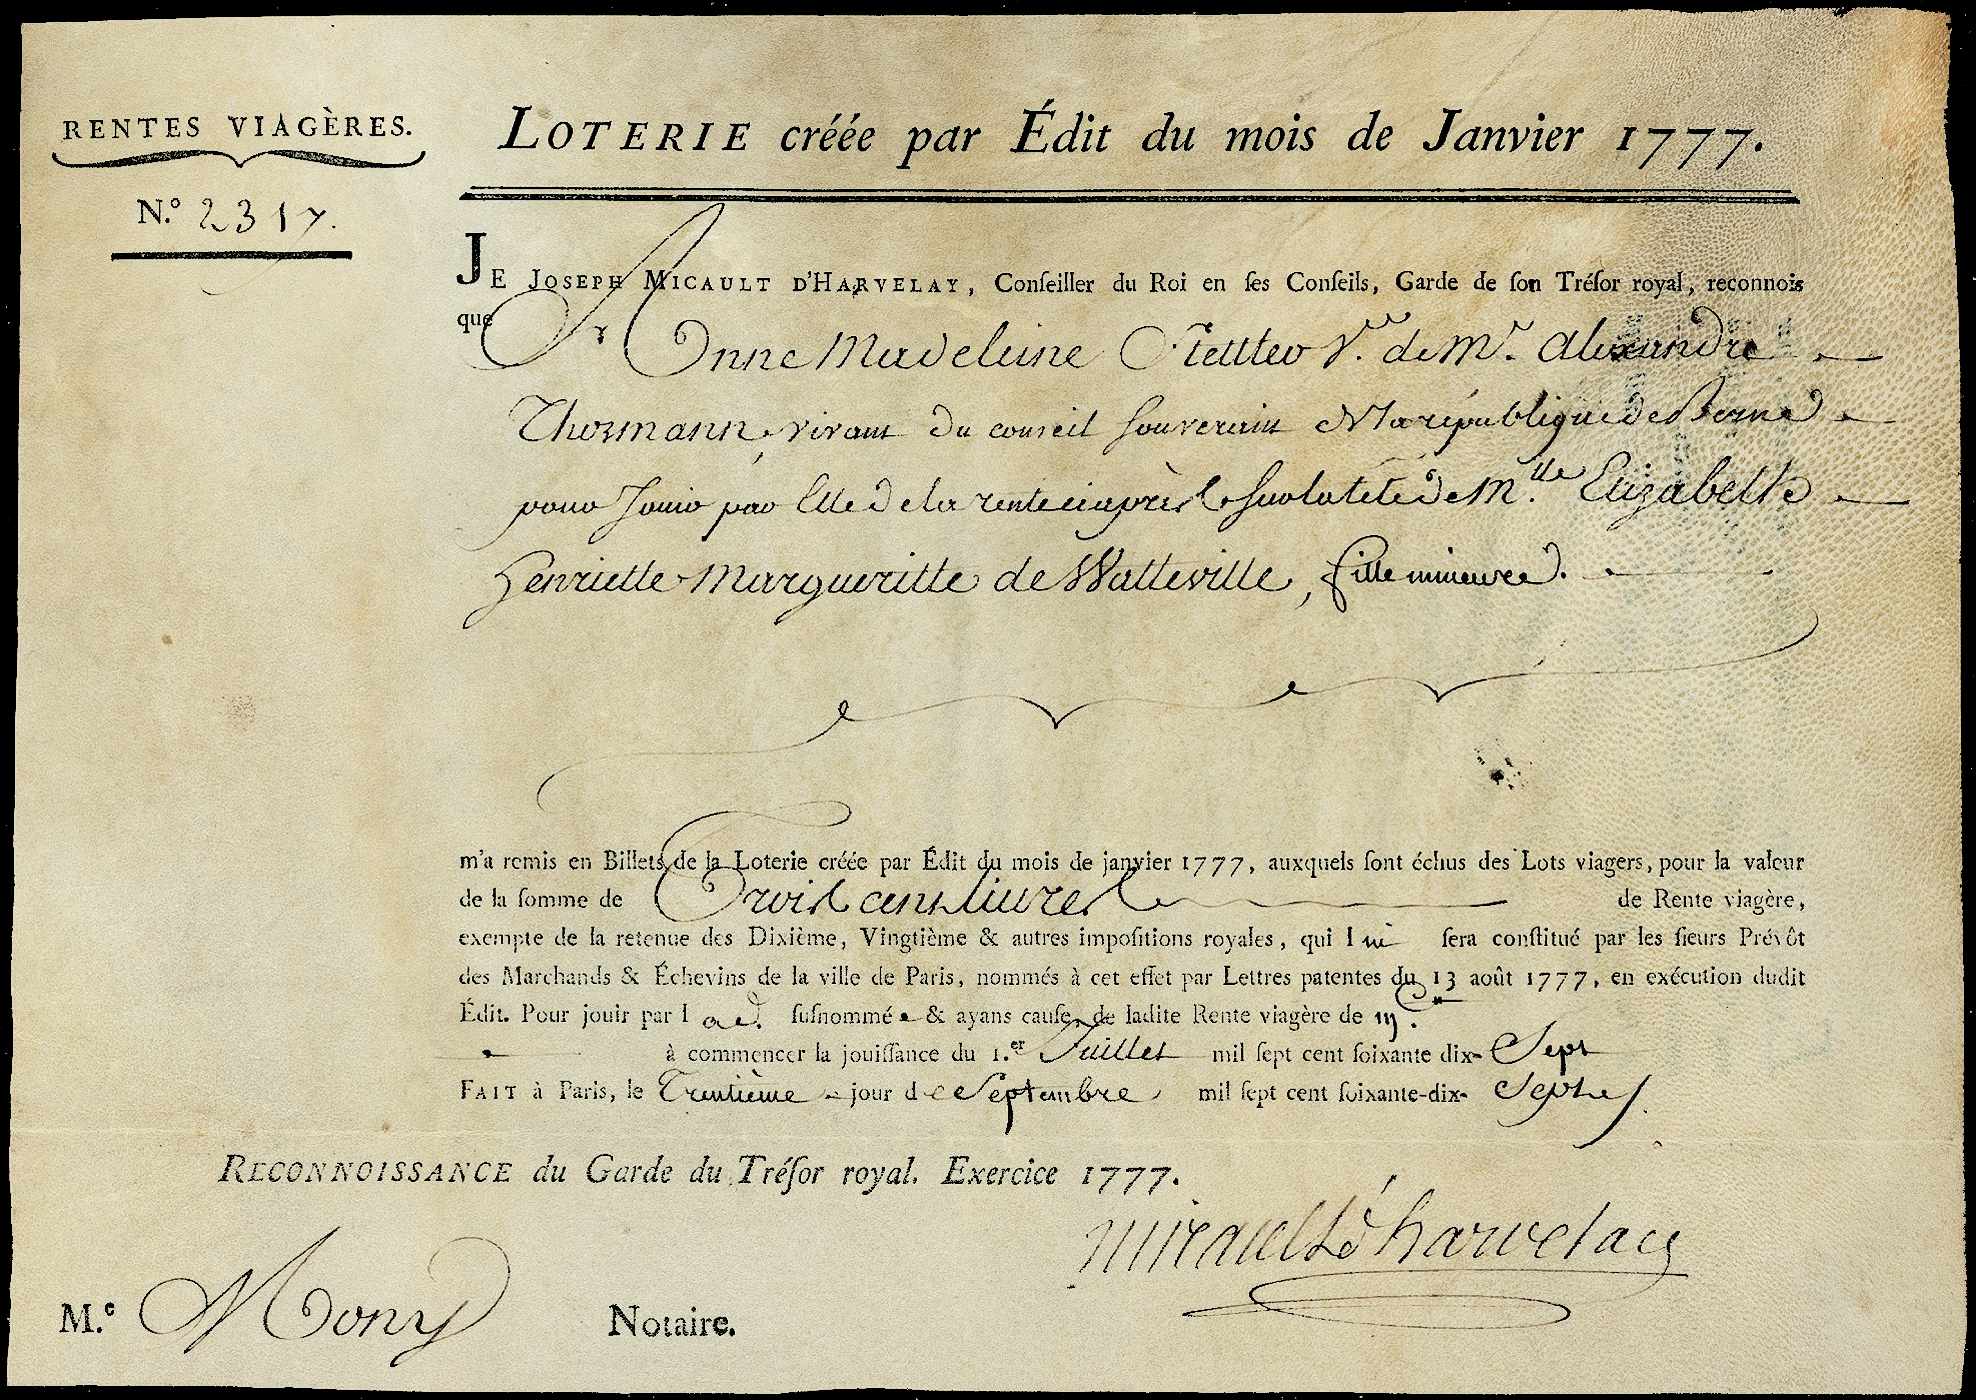 RENTES VIAGÈRES.
N.º 2317.
LOTERIE créée par Édit du mois de Janvier 1777.
JE JOSEPH MICAULT D'HARVELAY, Conſeiller du Roi en ſes Conſeils, Garde de ſon Tréſor royal, reconnois
que
Anne Madeleine Stettler V.ve de Mr. Alexandre
Thormann, vivant du conseil Souverain de la république de Berne
pour Jouir par Elle de la rente ci après sur la tête de M.lle Elizabeth
Henriette Margueritte de Watteville, fille mineure.
m'a remis en Billets de la Loterie créée par Édit du mois de janvier 1777, auxquels ſont échus des Lots viagers, pour la valeur
de la ſomme de Trois cens Livres de Rente viagère,
exempte de la retenue des Dixième, Vingtième & autres impoſitions royales, qui lui ſera conſtitué par les ſieurs Prévôt
des Marchands & Échevins de la ville de Paris, nommés à cet effet par Lettres patentes du 13 août 1777, en exécution dudit
Édit. Pour jouir par lad. ſuſnommée & ayans cauſe, de ladite Rente viagère de
à commencer la jouiſſance du 1.er Juillet mil ſept cent ſoixante dix-Sept
FAIT à Paris, le Trentième jour de Septembre mil ſept cent ſoixante-dix-Sept
RECONNOISSANCE du Garde du Tréſor royal. Exercice 1777.
Micault d'harvelay
M.e Mony Notaire.